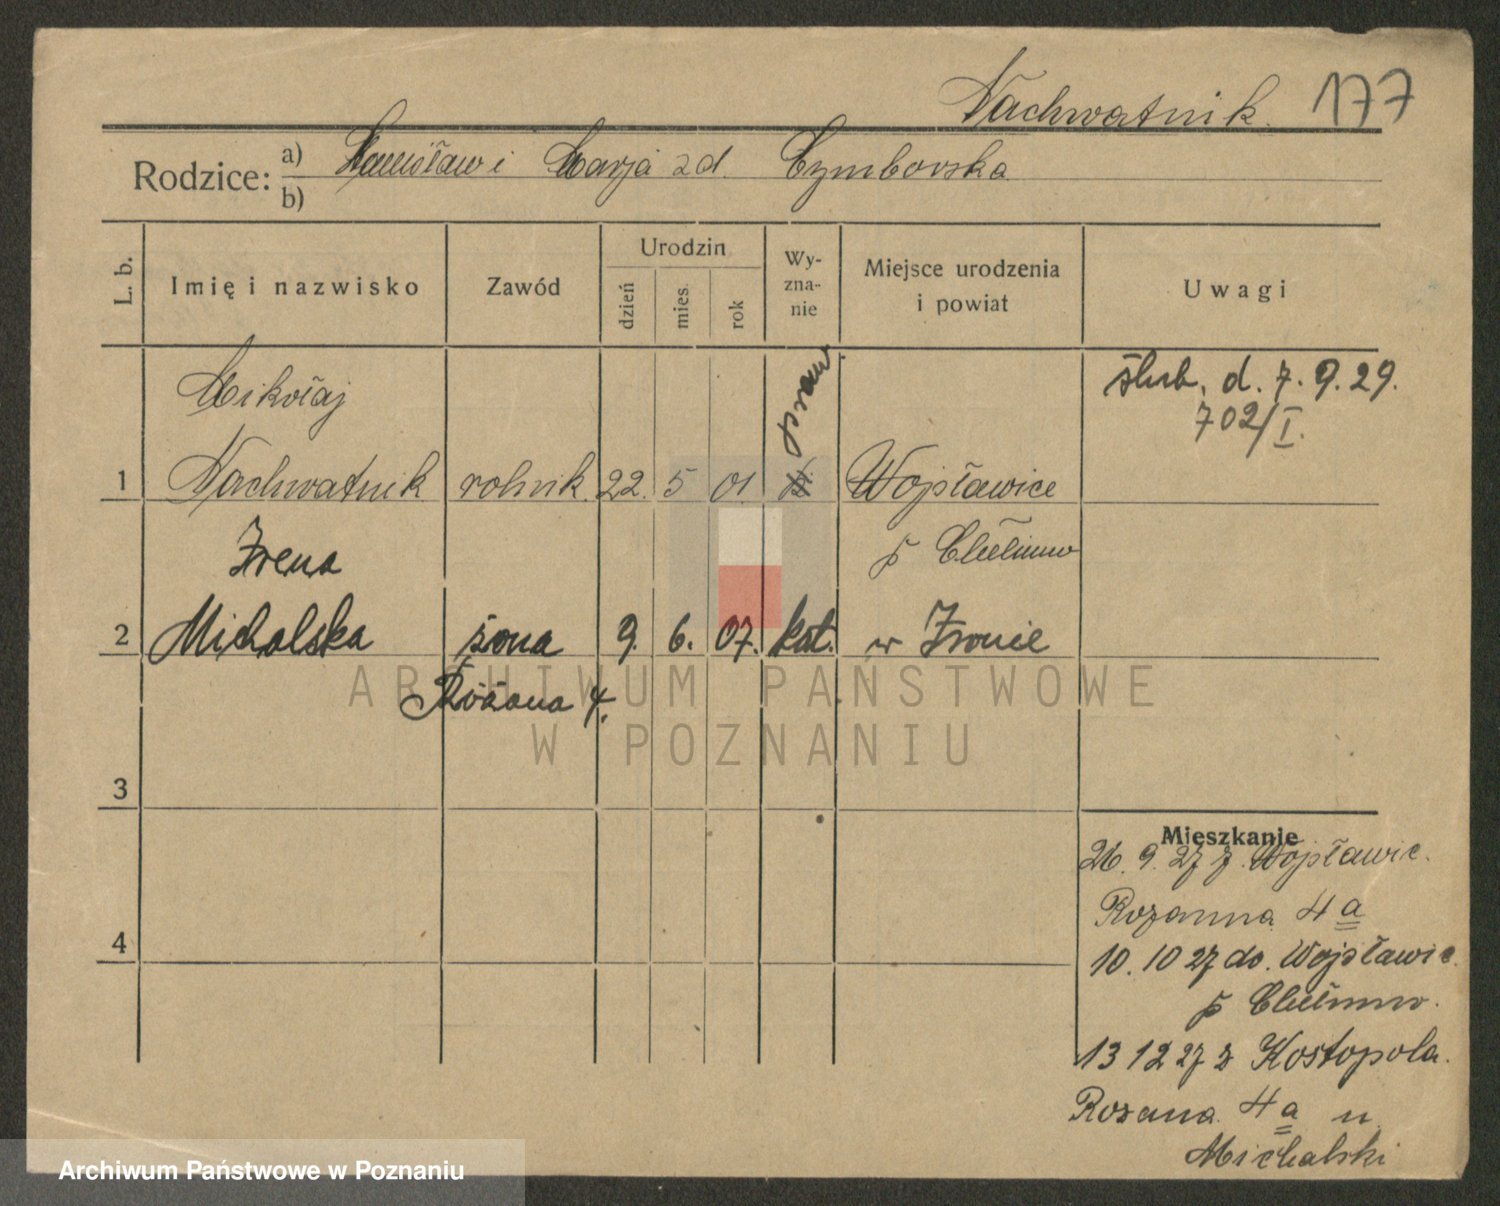 Nachwatnik. 177
Rodzice: a) Stanisław i Marja zd. Cymborska
b)
L. b. Imię i nazwisko Zawód Urodzin dzień mies. rok Wy-zna-nie Miejsce urodzenia i powiat Uwagi
Mikołaj praw ślub. d. 7. 9. 29.
702/I.
1 Nachwatnik rolnik. 22. 5 01. Wojsławice
Irena p
2 Michalska żona 9. 6. 07. kat. w
Różana 4.
ARCHIWUM PAŃSTWOWE
W POZNANIU
3
Mieszkanie
26. 9. 27 z. Wojsławic.
4 Rozanna 4a
10. 10 27 do. Wojsławic.
p
13 12 27 z Kostopola.
Rozana 4a u
Michalski
Archiwum Państwowe w Poznaniu